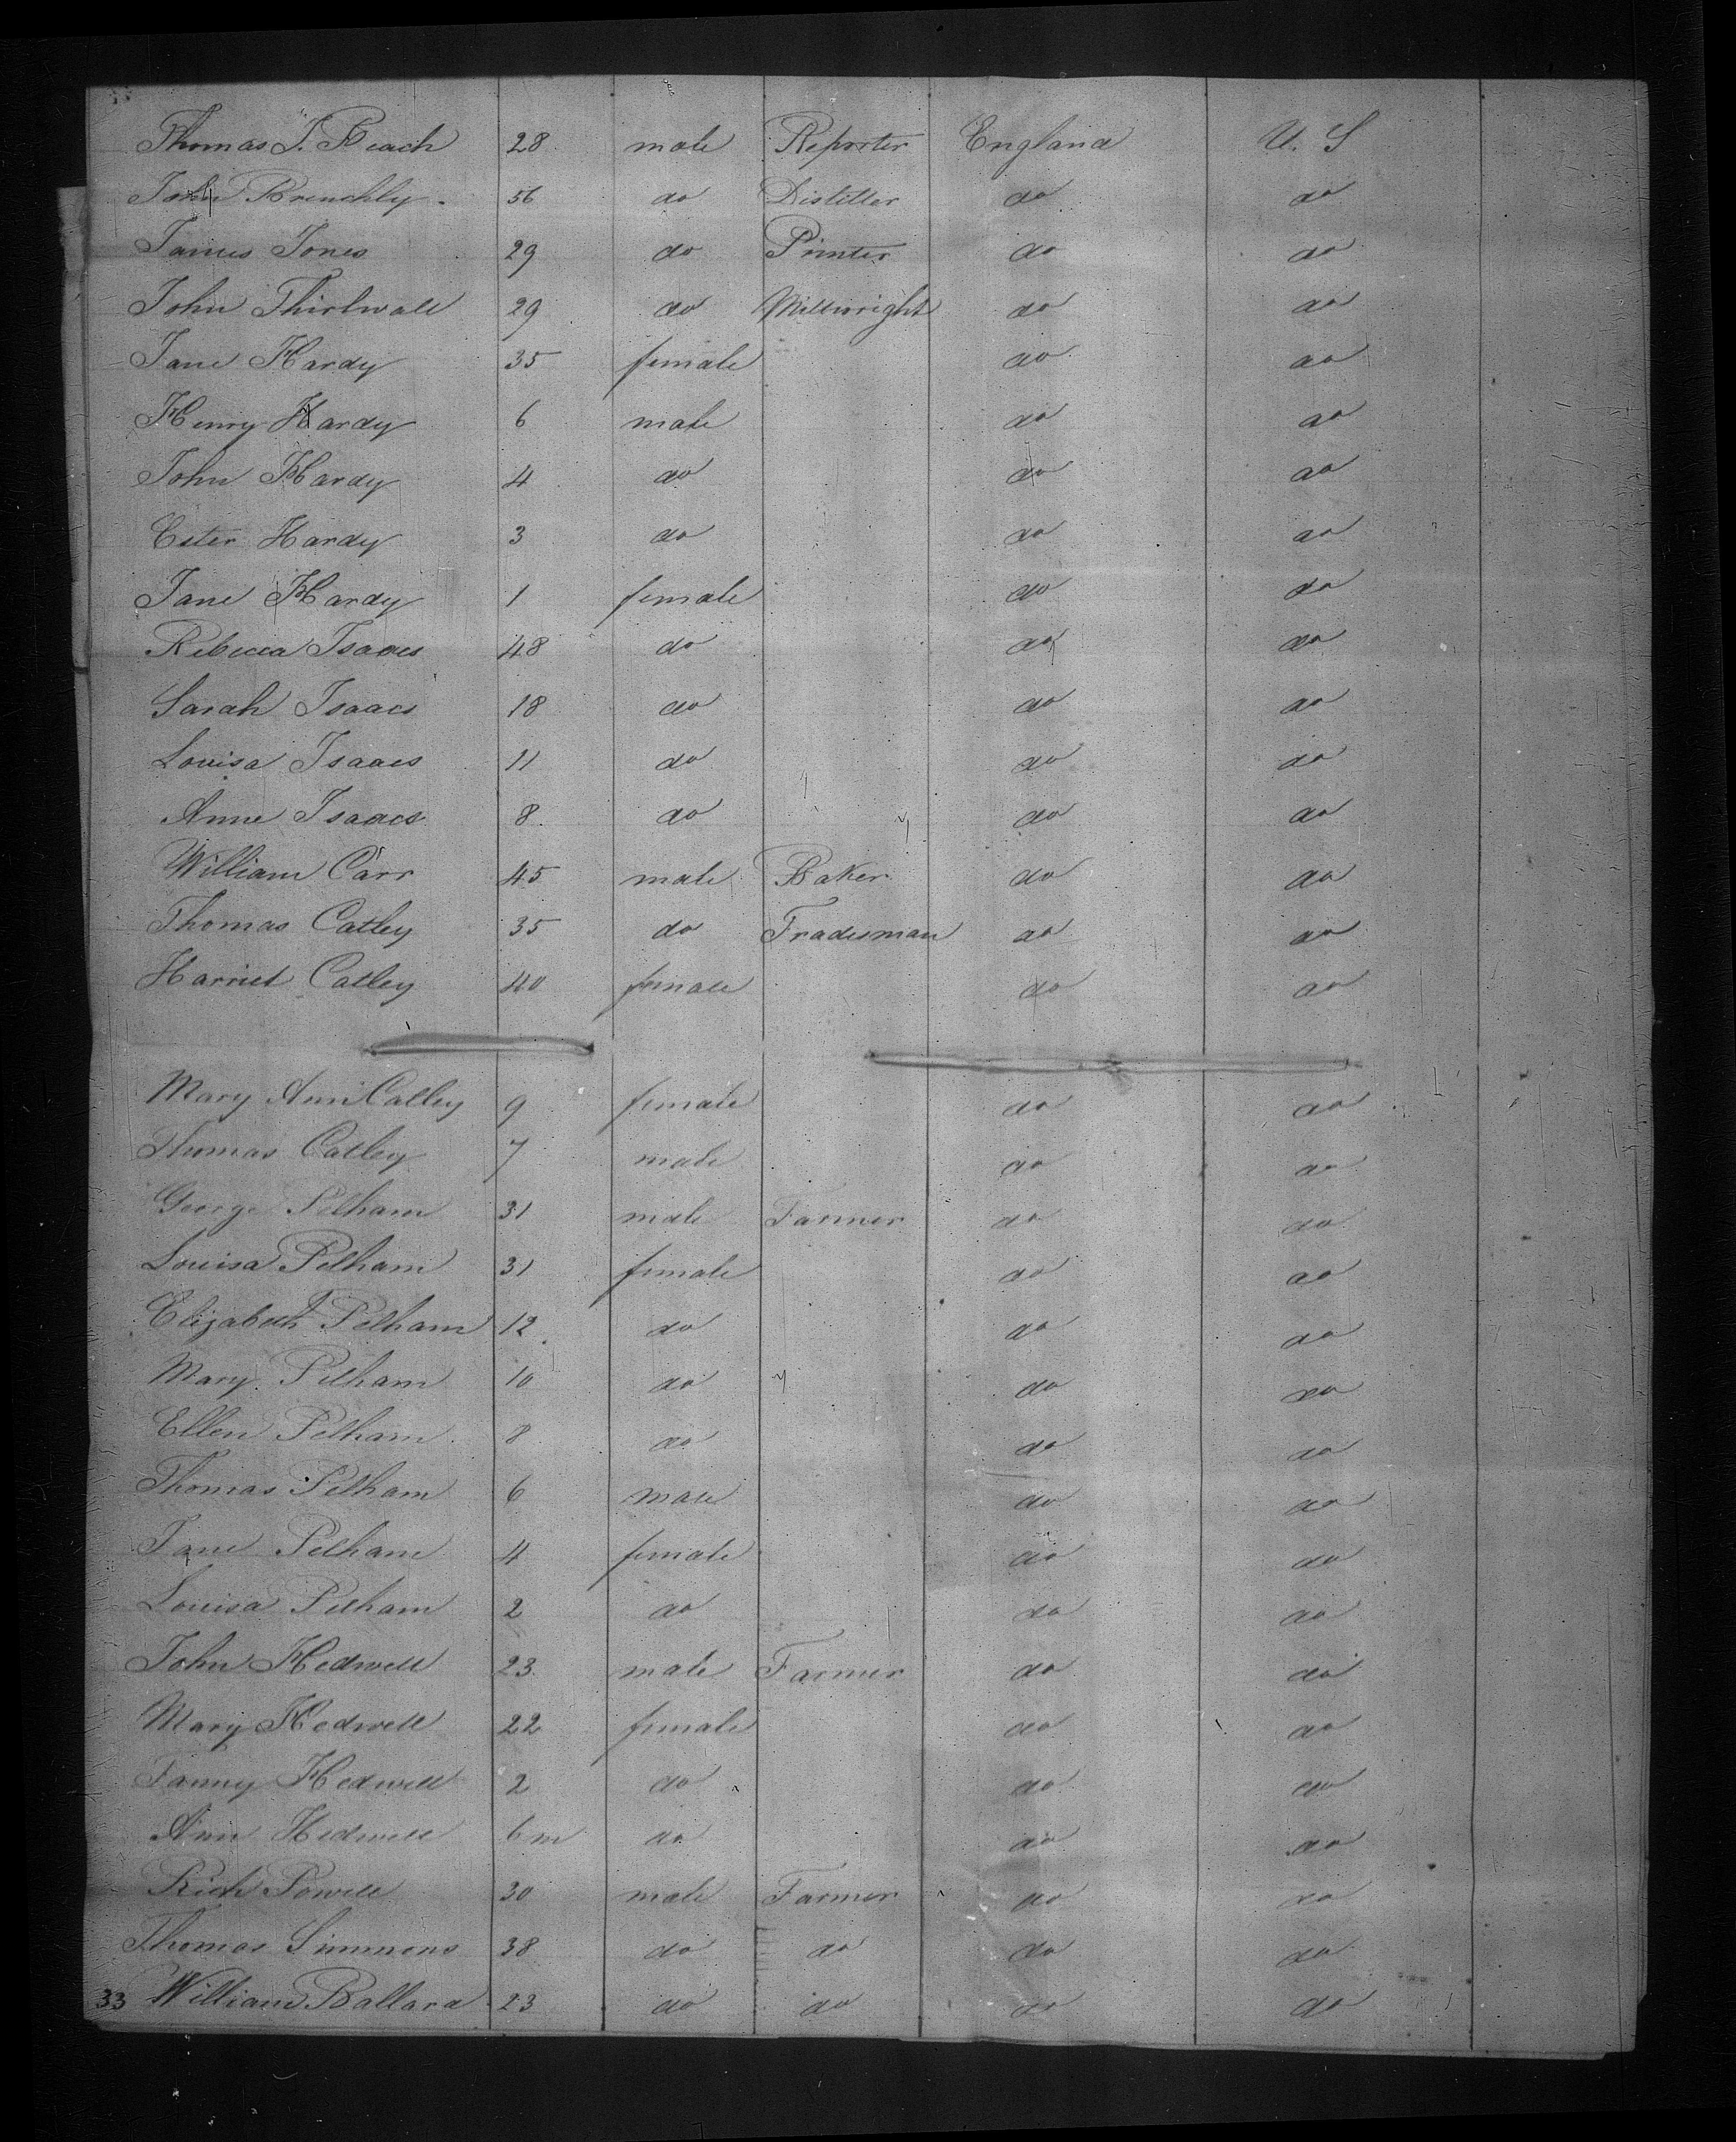 Thomas J. Beach 28 male Reporter England U. S
John Brenchly 56 do Distiller do do
James Jones 29 do Printer do do
John Thirlwall 29 do Millwright do do
Jane Hardy 35 female do do
Henry Hardy 6 male do do
John Hardy 4 do do do
Ester Hardy 3 do do do
Jane Hardy 1 female do do
Rebecca Isaacs 48 do do do
Sarah Isaacs 18 do do do
Louisa Isaacs 11 do do do
Anne Isaacs 8 do do do
William Carr 45 male Baker do do
Thomas Catley 35 do Tradesman do do
Harriet Catley 40 female do do
Mary Ann Catley 9 female do do
Thomas Catley 7 male do do
George Pelham 31 male Farmer do do
Louisa Pelham 31 female do do
Elizabeth Pelham 12 do do do
Mary Pelham 10 do do do
Ellen Pelham 8 do do do
Thomas Pelham 6 male do do
Jane Pelham 4 female do do
Louisa Pelham 2 do do do
John Hedwell 23 male Farmer do do
Mary Hedwell 22 female do do
Fanny Hedwell 2 do do do
Ann Hedwell 6 m do do do
Rich Powell 30 male Farmer do do
Thomas Simmens 38 do do do do
33 William Ballard 23 do do do do